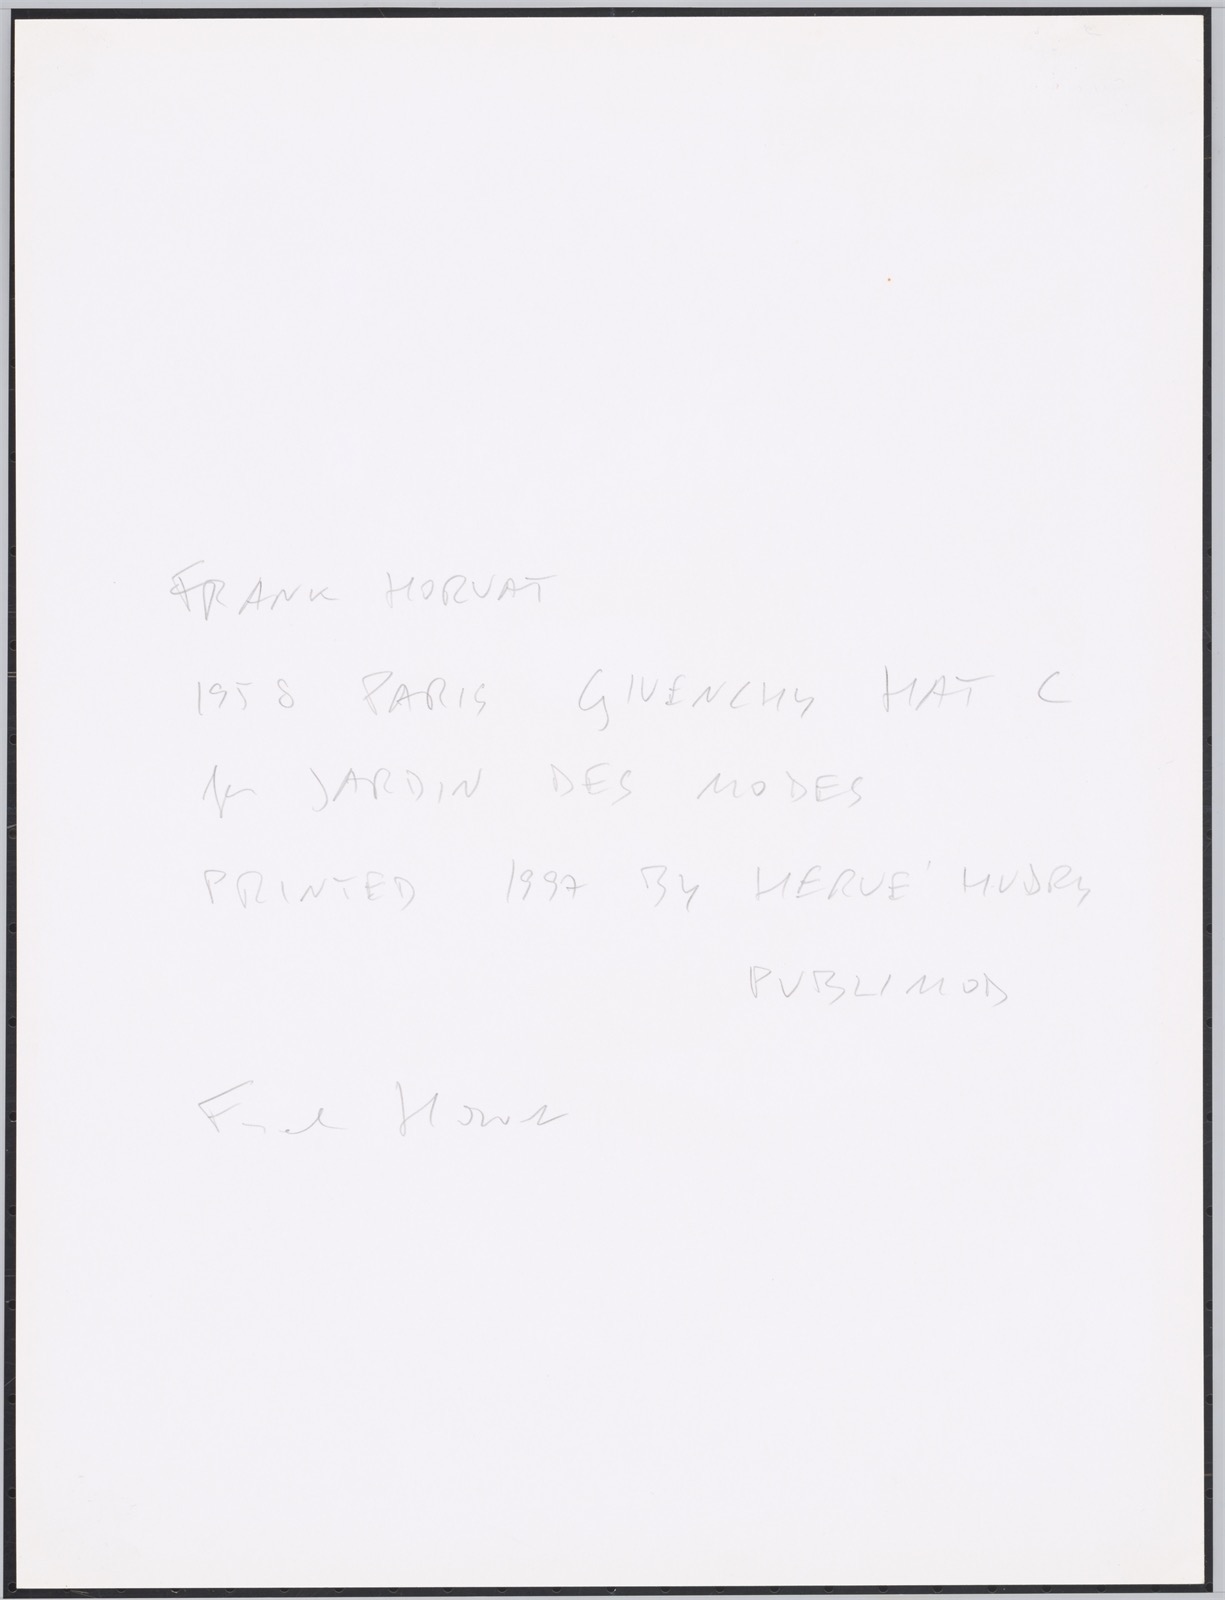 FRANK HORVAT
1958 PARIS GIVENCHY HAT C
for JARDIN DES MODES
PRINTED 1997 BY HERVE' HUDRY
PUBLIMOD
Frank Horvat